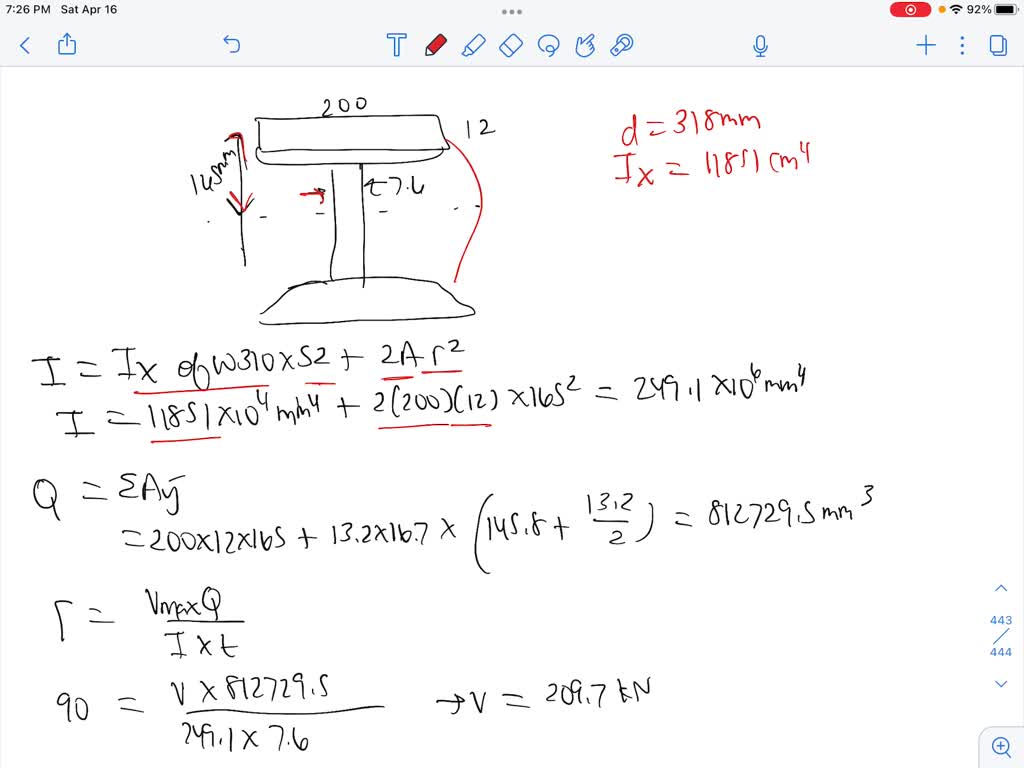 7:26 PM Sat Apr 16
92%
200
12
145mm
t7.6
d = 318mm
Ix = 11851 cm⁴
I = Ix of W310x52 + 2Ar²
I = 11851 x10⁴ mm⁴ + 2(200)(12) x165² = 249.1 x10⁶ mm⁴
Q = ΣAȳ
= 200x12x165 + 13.2x16.7 x (145.8 + 13.2/2) = 812729.5 mm³
τ = VmaxQ / I x t
90 = V x 812729.5 / 249.1 x 7.6 → V = 209.7 kN
443
/
444